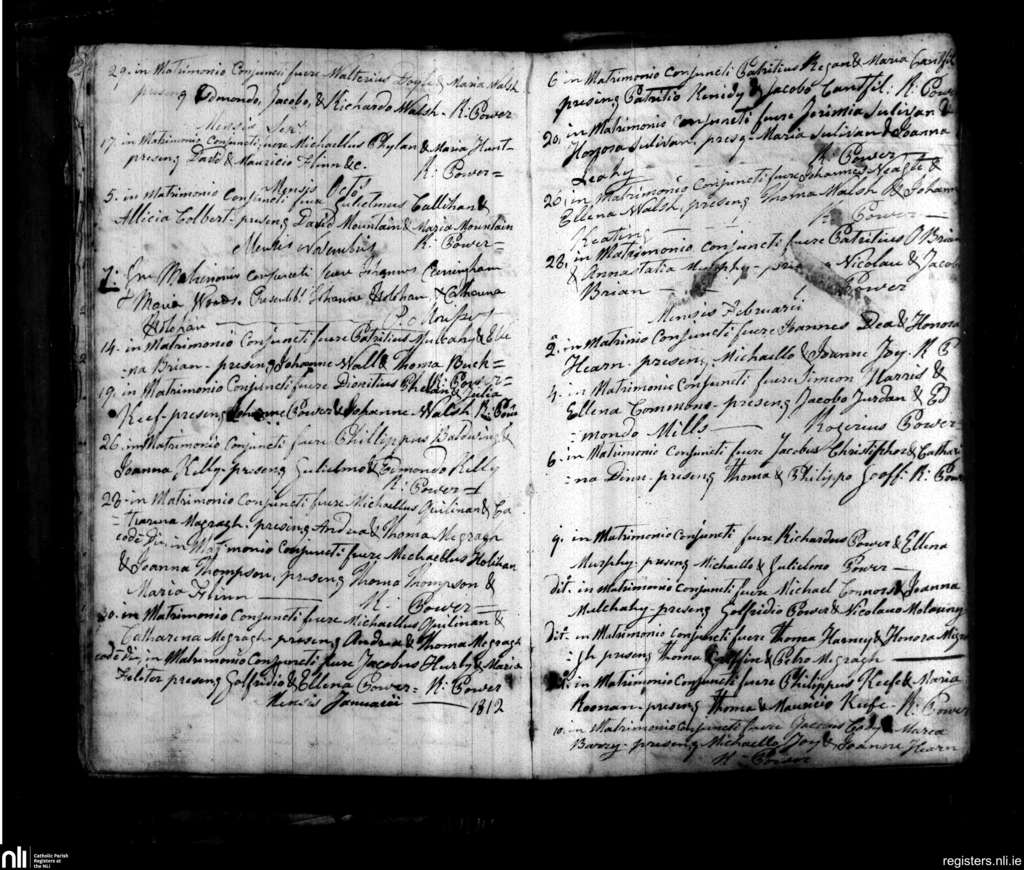 29. in Matrimonio Conjuncti fuere Walterius Doyle & Maria Walsh
presens Edmondo, Jacobo, & Richardo Walsh - R: Power
Mensis
17. in Matrimonio Conjuncti fuere Michaellus Phylan & Maria Hunt -
presens David & Mauricio Flinn &c. R: Power =
Mensis Octo
5. in Matrimonio Conjuncti fuere Gulielmus Callihan &
Allicia Colbert - presens David Mountain & Maria Mountain
Mensis Novembris R: Power =
7. In Matrimonio conjuncti fuere Cuningham
& Maria Woods. Johanne Holohan, & Catharina
Holohan
14. in Matrimonio Conjuncti fuere Patritius Mulcahy & Elle
= na Brian - presens Johanne Wall & Thoma Buck =
R: Power =
19. in Matrimonio Conjuncti fuere Dionitius Phelan & Julia
Keef - presens Johanne Power & Johanne Walsh R: Power
26. in Matrimonio Conjuncti fuere Phillippus Baldwing &
Joanna Kelly - presens Gulielmo & Edmondo Kelly
R: Power =
28. in Matrimonio Conjuncti fuere Michaellus Quilinan & Ca
= tharina Megragh - presens Andrea & Thoma Megragh
eodē die, in Matrimonio Conjuncti fuere Michaellus Holihan
& Joanna Thompson, presens Thoma Thompson &
Maria Flinn — R: Power =
30. in Matrimonio Conjuncti fuere Michaellus Quilinan &
Catharina Megragh - presens Andrea & Thoma Megragh
eodē di, in Matrimonio Conjuncti fuere Jacobus Hurly & Maria
Felster presens Golfridio & Ellena Power = R: Power
Mensis Januarii — 1812
6 in Matrimonio Conjuncti Patritius Regan & Maria Cantfil
presens Patritio Kenidy & Jacobo Cantfil: R: Power
20. in Matrimonio Conjuncti fuere Jerimia Sulivan &
Honora Sulivan, presens - Maria Sulivan & Joanna
Leahy R: Power
26. in Matrimonio Conjuncti fuere Johannes Neagle &
Ellena Walsh, presens Thoma Walsh & Johann
Keating - R: Power —
28. in Matrimonio conjuncti fuere Patritius O Brian
& Annastatia Murphy - Nicolau & Jacob
Brian — Power
Mensis Februarii
2. in Matrinio Conjuncti fuere Joannes Dea & Honora
Hearn - presens, Michaello & Joanne Joy. R P
4. in Matrimonio Conjuncti fuere Simeon Harris &
Ellena Commons - presens Jacobo Jurdan & Ed
= mondo Mills — Rogerius Power
6. in Matrimonio Conjuncti fuere Jacobus Christopher & Cathari
= na Dinn - presens Thoma & Philippo Goff: R: Power
9. in Matrimonio Conjuncti fuere Richardus Power & Ellena
Murphy - presens Michaello & Gulielmo Power —
dit. in Matrimonio Conjuncti fuere Michael Connors & Joanna
Mulchahy - presens Golfridio Power & Nicolauo Molouny
dit. in Matrimonio Conjuncti fuere Thoma Harney & Honora Megra
= gh presens Thoma Griffin & Petro Megragh —
in Matrimonio Conjuncti fuere Philippus Keefe & Maria
Noonan - presens Thoma & Mauricio Keefe - R: Power
10. in Matrimonio Conjuncti fuere Jacobus & Maria
Barry - presens Michaello Joy & Joanne Hearn
R: Power
nli Catholic Parish
Registers at
the NLI
registers.nli.ie